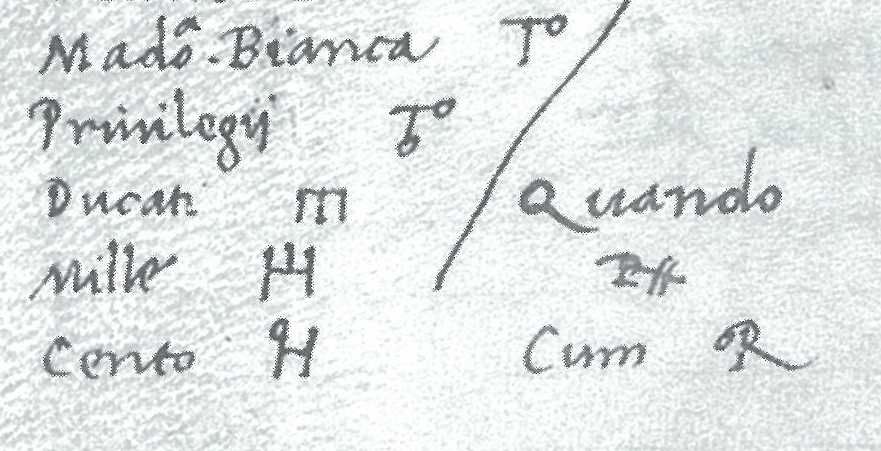 Madō. Bianca To
Privilegij To
Ducati
Mille
Cento
Quando
Cum